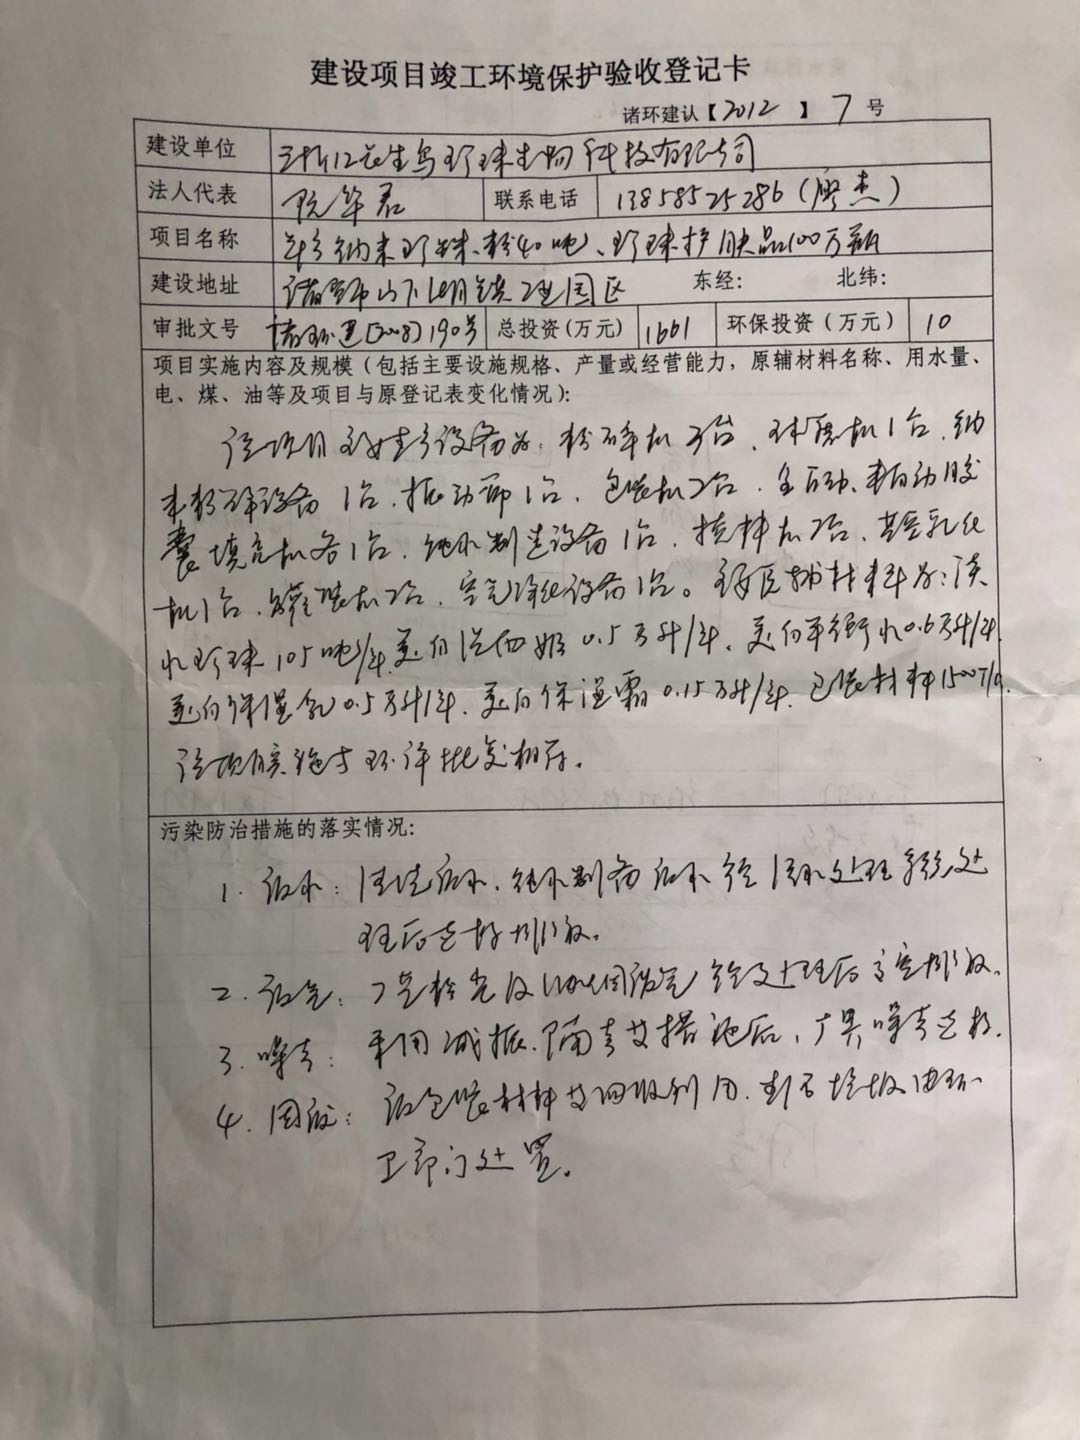 建设项目竣工环境保护验收登记卡
诸环建认【2012】7号
建设单位 浙江长生鸟珍珠生物科技有限公司
法人代表 阮华君 联系电话 13858525286(廖杰)
项目名称 年产纳米珍珠粉40吨、珍珠护肤品100万瓶
建设地址 诸暨市山下湖镇工业园区 东经: 北纬:
审批文号 诸环建[2008]190号 总投资(万元) 1661 环保投资(万元) 10
项目实施内容及规模(包括主要设施规格、产量或经营能力,原辅材料名称、用水量、
电、煤、油等及项目与原登记表变化情况):
该项目主要生产设备为:粉碎机3台、球磨机1台、纳
米粉碎设备1台、振动筛1台、包装机2台、全自动、半自动胶
囊填充机各1台、纯水制造设备1台、搅拌机2台、真空乳化
机1台、灌装机2台、空气净化设备1台。主要原辅材料为:淡
水珍珠105吨/年、美白洁面奶0.5万升/年、美白平衡水0.6万升/年
美白保湿乳0.5万升/年、美白保湿霜0.15万升/年、包装材料1500T/a.
该项目实施与环评批复相符。
污染防治措施的落实情况:
1.废水:清洗废水、纯水制备废水经污水处理系统处
理后达标排放。
2.废气: 经处理后高空排放。
3.噪声:采用减振、隔音等措施后,厂界噪声达标.
4.固废:废包装材料等回收利用.生活垃圾由环
卫部门处置。